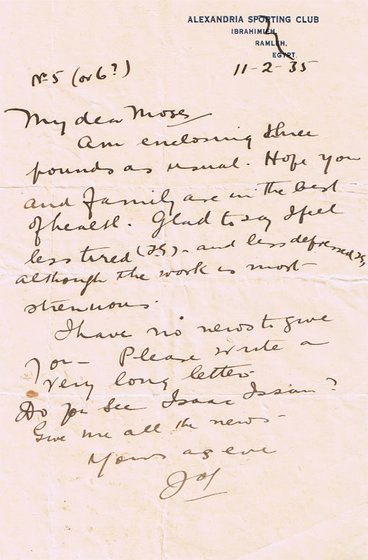 ALEXANDRIA SPORTING CLUB
IBRAHIMIEH,
RAMLEH,
EGYPT.
No 5 (or 6?)
11-2-35
My dear Moses
Am enclosing three
pounds as usual. Hope you
and family are in the best
of health. Glad to say I feel
less tired (25) - and less depressed 25,
although the work is most
strenuous.
I have no news to give
you - Please write a
very long letter
Do you see Isaac Issan?
Give me all the news -
Yours as ever